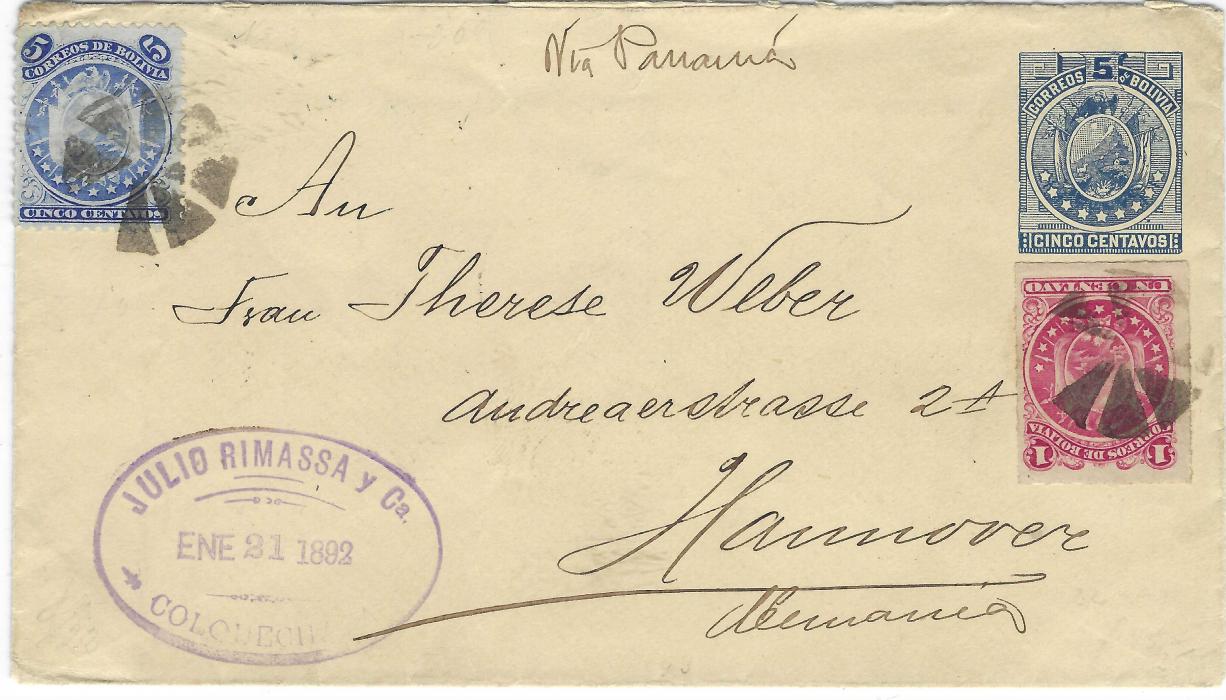 5 5
CORREOS DE BOLIVIA
CINCO CENTAVOS
Via Panamá
5 cs
CORREOS DE BOLIVIA
CINCO CENTAVOS
An
Frau Therese Weber
Andreaerstrasse 2A
Hannover
Alemania
UN CENTAVO
CORREOS DE BOLIVIA
1 1
JULIO RIMASSA y Ca.
ENE 21 1892